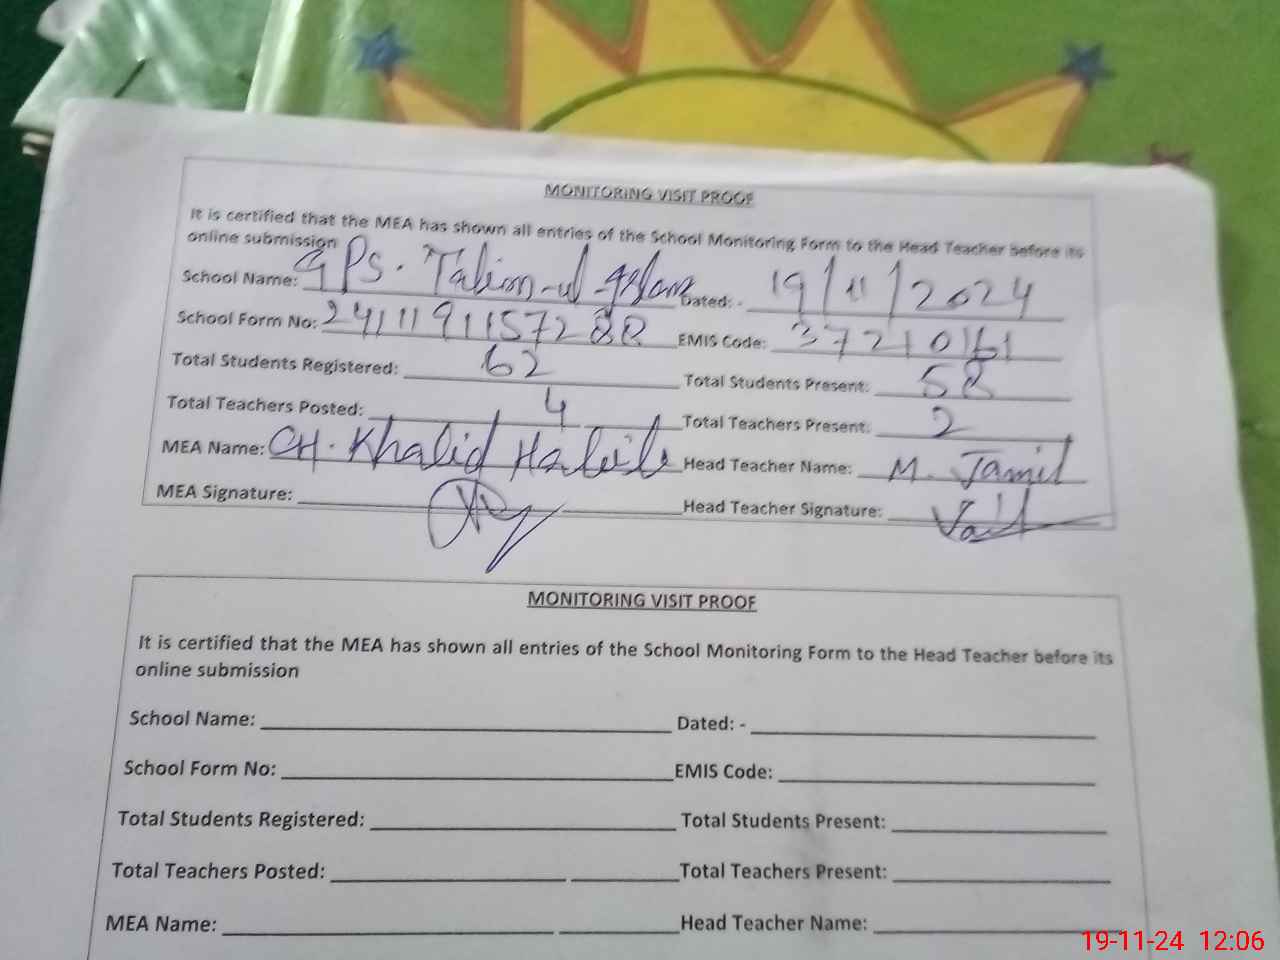 MONITORING VISIT PROOF
It is certified that the MEA has shown all entries of the School Monitoring Form to the Head Teacher before its
online submission
School Name: GPS. Talim-ul-Islam Dated: - 19/11/2024
School Form No: 2411191157288 EMIS Code: 37210161
Total Students Registered: 62 Total Students Present: 58
Total Teachers Posted: 4 Total Teachers Present: 2
MEA Name: CH. Khalid Head Teacher Name: M. Jamil
MEA Signature: Head Teacher Signature:
MONITORING VISIT PROOF
It is certified that the MEA has shown all entries of the School Monitoring Form to the Head Teacher before its
online submission
School Name: Dated: -
School Form No: EMIS Code:
Total Students Registered: Total Students Present:
Total Teachers Posted: Total Teachers Present:
MEA Name: Head Teacher Name:
19-11-24 12:06